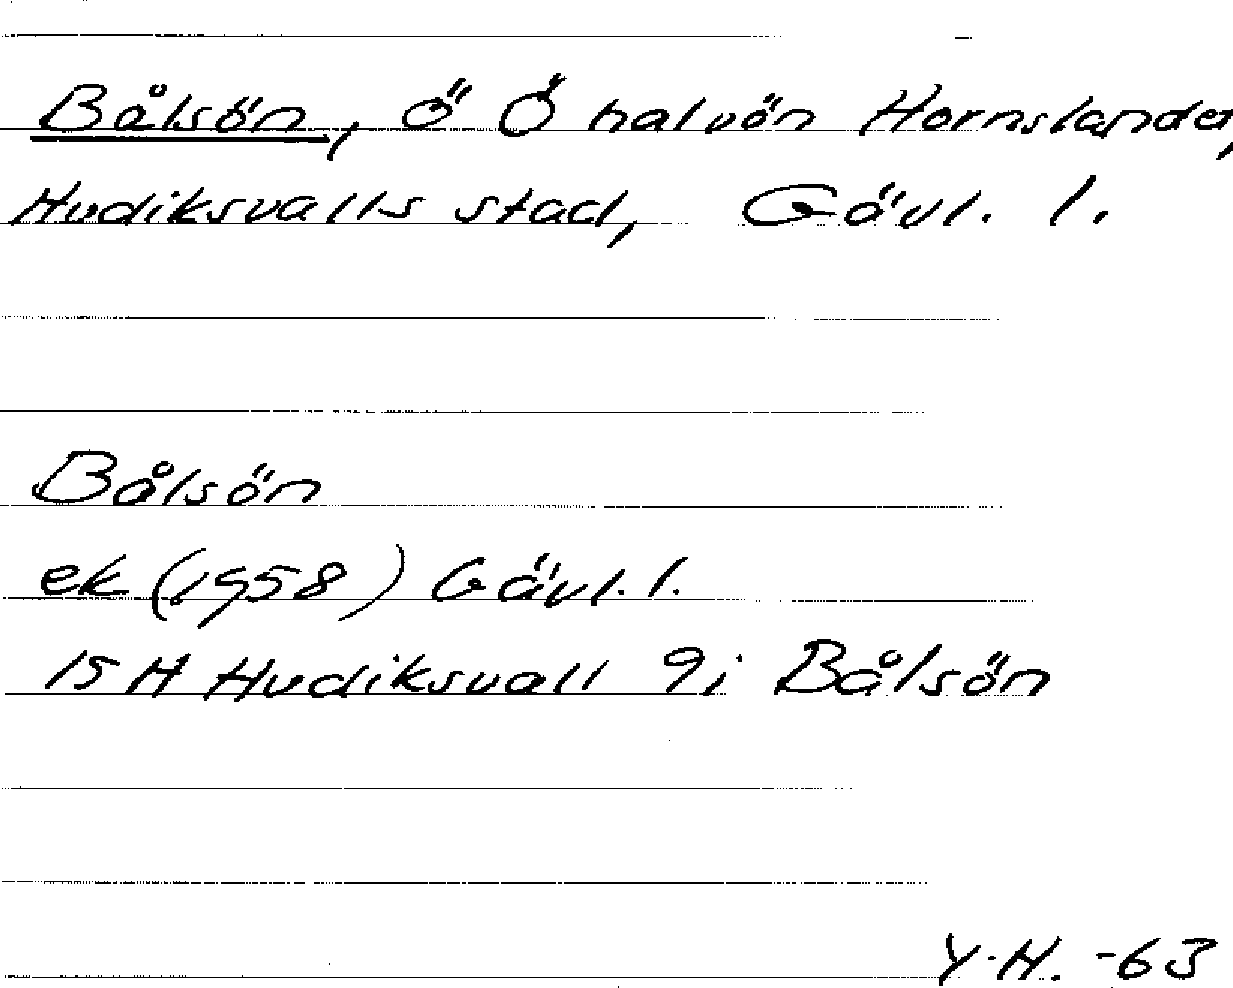 Bålsön, ö Ö halvön Hornslandet,
Hudiksvalls stad, Gävl. l.
Bålsön
ek (1958) Gävl. l.
15 H Hudiksvall 9i Bålsön
Y.H. -63